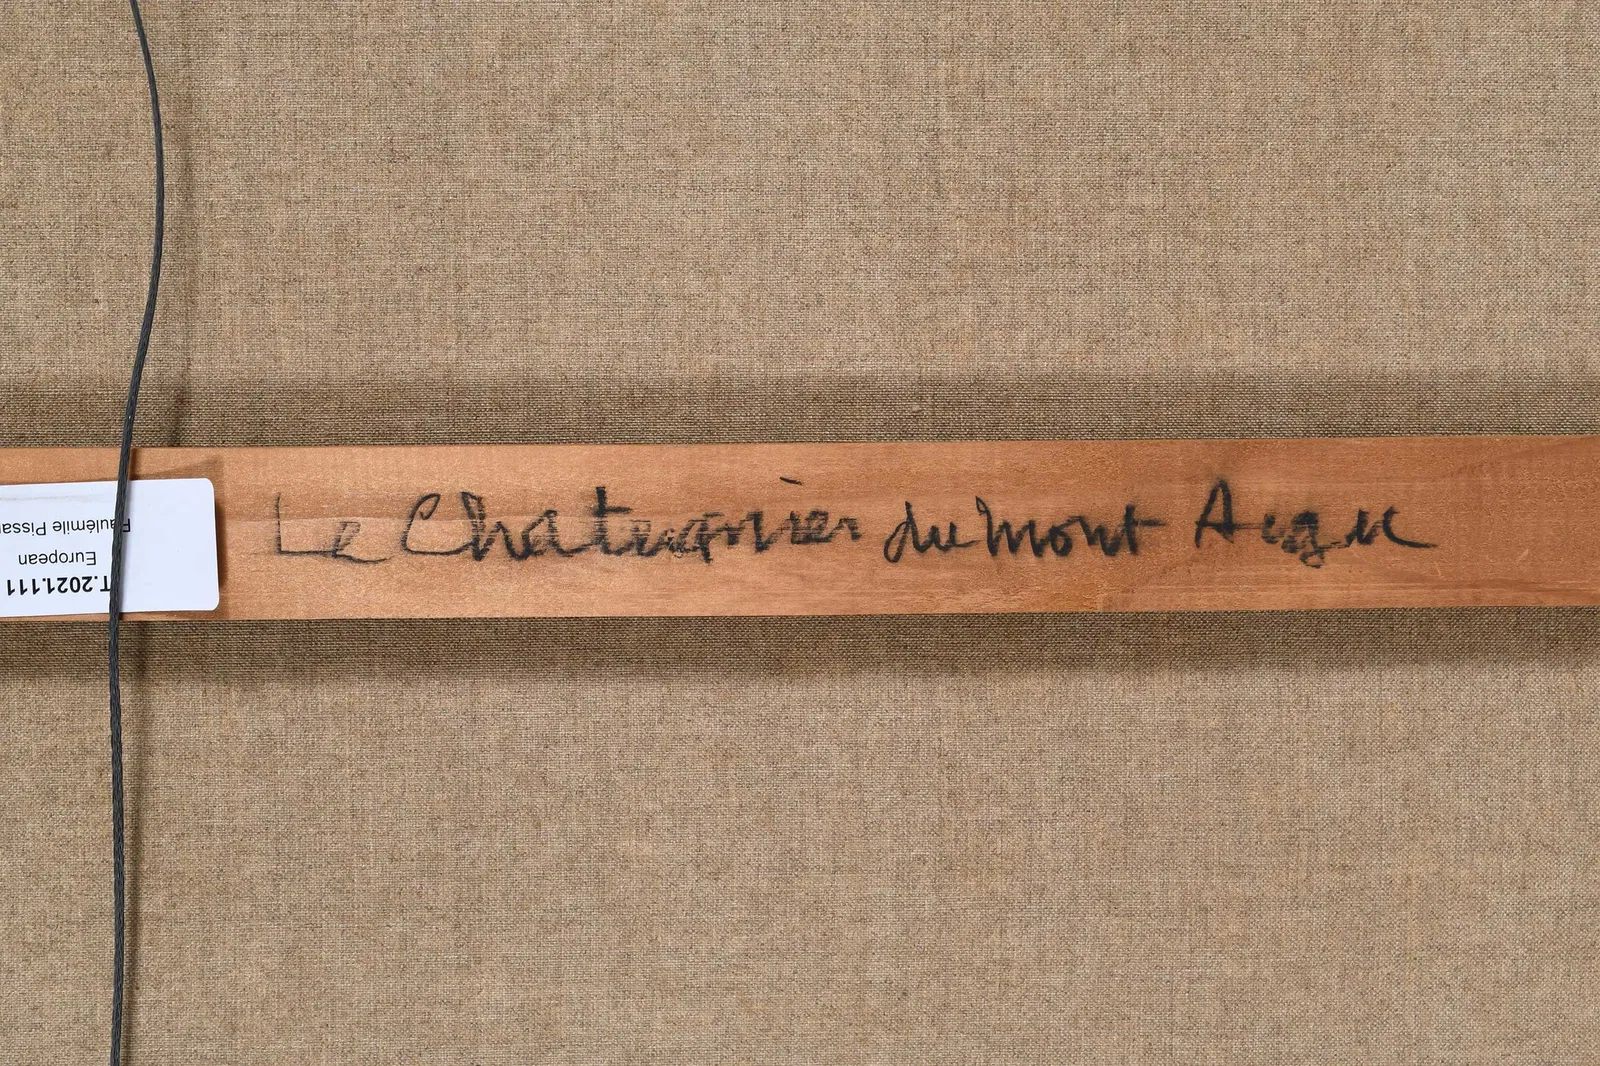 Le Chataignier du Mont Aigu
T.2021.111
European
Paulémile Pissar